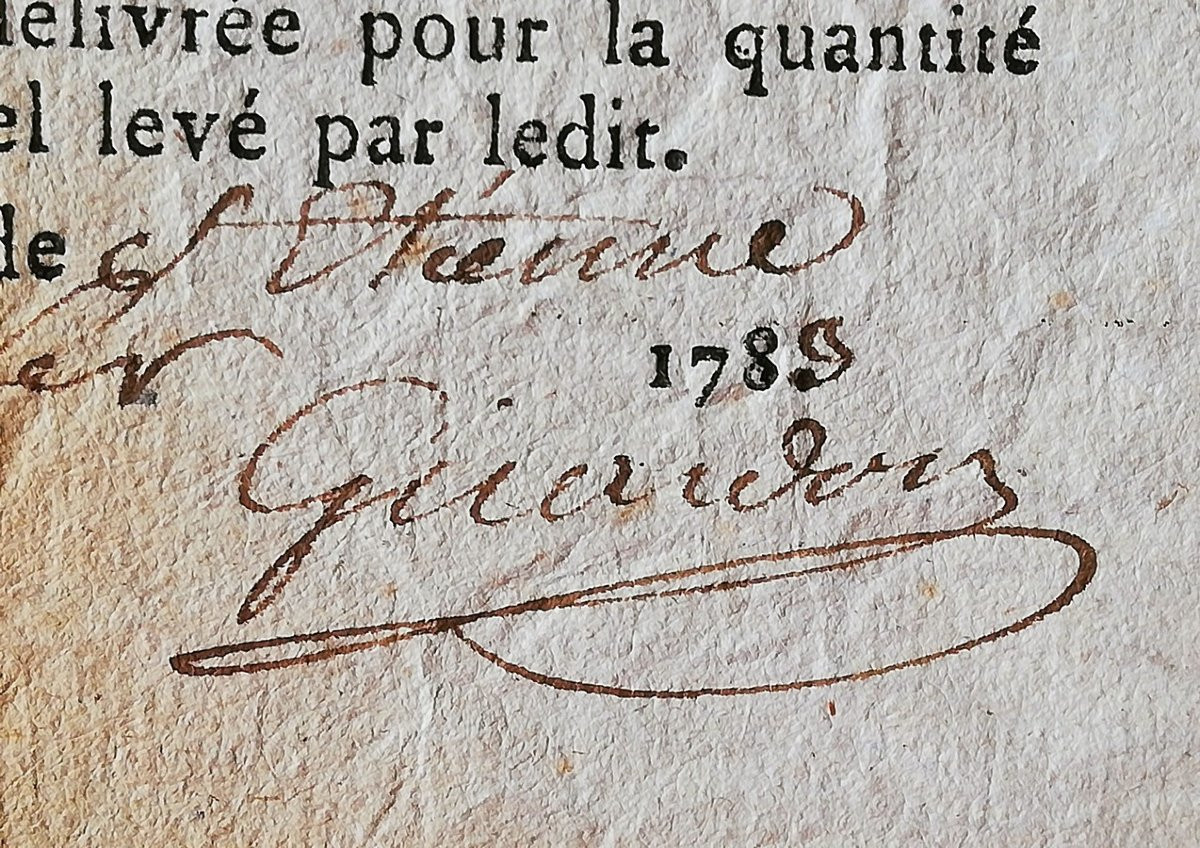 délivrée pour la quantité
el levé par ledit.
de St Etienne
er 1789